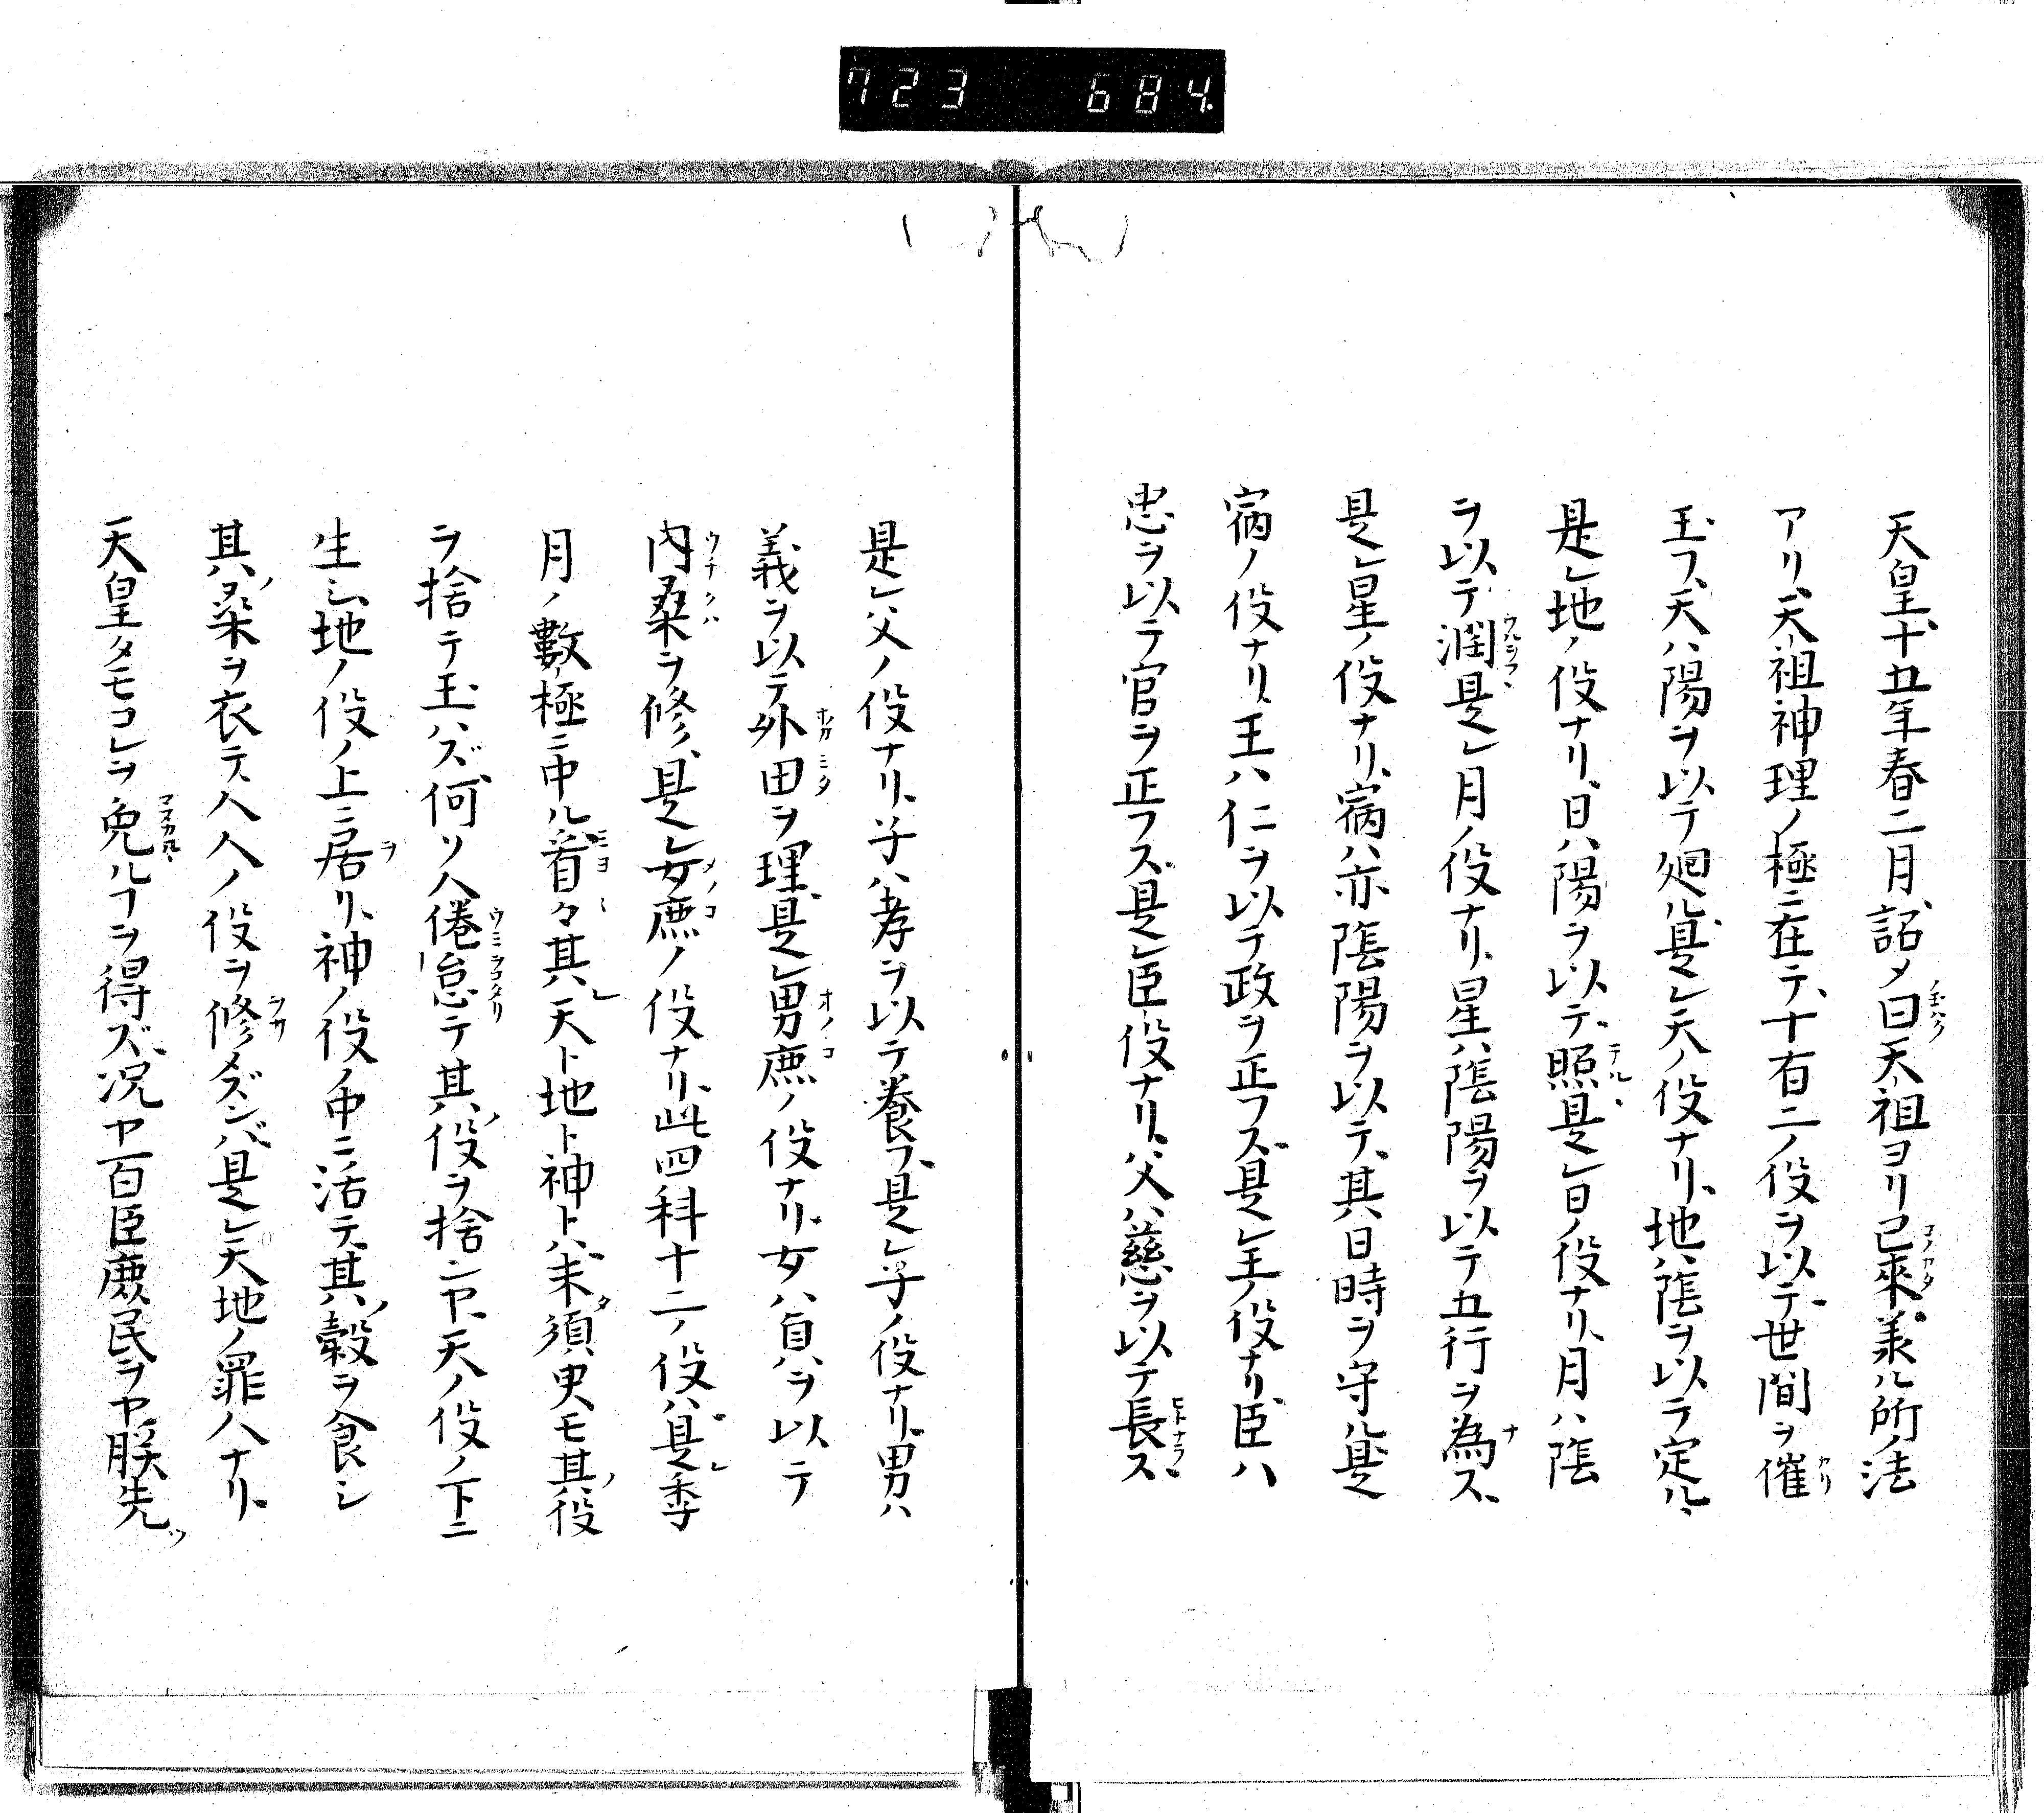 723 684
天皇、十五年春二月、詔メ曰天祖ヨリ已來、羕ル所ノ法
アリ、天祖神理ノ極ニ在テ、十有二ノ役ヲ以テ、世間ヲ催
玉フ、天ハ陽ヲ以テ廻ル、是レ天ノ役ナリ、地ハ陰ヲ以テ定ル、
是レ地ノ役ナリ、日ハ陽ヲ以テ、照是レ日ノ役ナリ、月ハ陰
ヲ以テ、潤是レ月ノ役ナリ、星ハ陰陽ヲ以テ五行ヲ為ス、
是レ星ノ役ナリ、宿ハ亦陰陽ヲ以テ、其日時ヲ守ル是
宿ノ役ナリ、王ハ仁ヲ以テ政ヲ正フス、是レ王ノ役ナリ、臣ハ
忠ヲ以テ官ヲ正フス、是レ臣役ナリ、父ハ慈ヲ以テ長ス
是レ父ノ役ナリ、子ハ孝ヲ以テ養フ、是レ子ノ役ナリ、男ハ
義ヲ以テ外田ヲ理、是レ男庶ノ役ナリ、女ハ貞ヲ以テ
内桑ヲ修、是レ女庶ノ役ナリ、此四科十二ノ役ハ是レ季
月ノ數極ニ中ル、看々其レ天ト地ト神トハ、未タ須臾モ其ノ役
ヲ捨テ玉ハズ、何ソ人倦怠テ其ノ役ヲ捨ンヤ、天ノ役ノ下ニ
生シ、地ノ役ノ上ニ居リ、神ノ役ノ中ニ活テ、其ノ穀ヲ食シ
其ノ桑ヲ衣テ、人人ノ役ヲ修メズンバ、是レ天地ノ罪人ナリ、
天皇タモコレヲ免ルヿヲ得ズ、况ヤ百臣庶民ヲヤ、朕先ツ